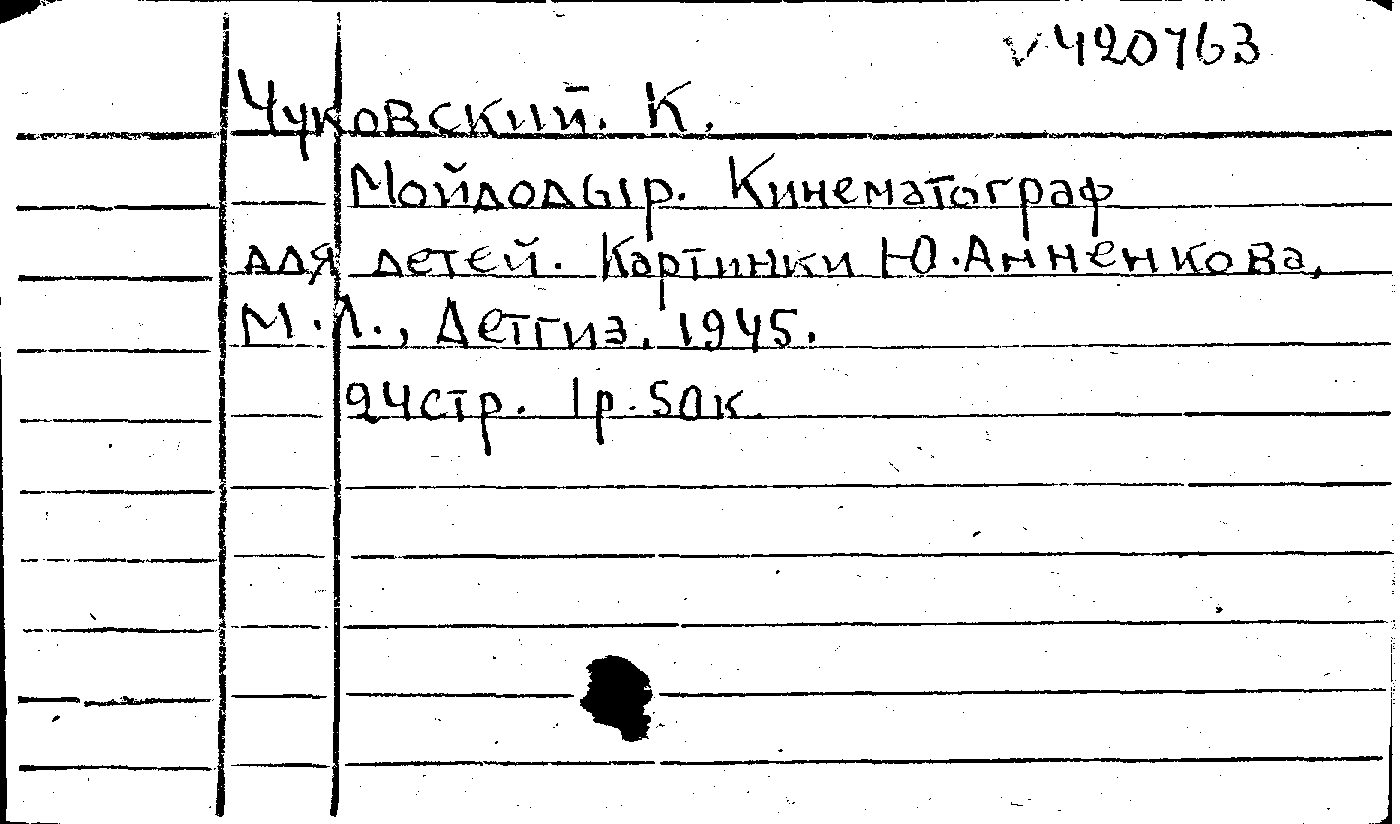 V420763
Чуковский. К.
Мойдодыр. Кинематограф
для детей. Картинки Ю.Анненкова,
М.Л., Детгиз. 1945.
24стр. 1р.50к.